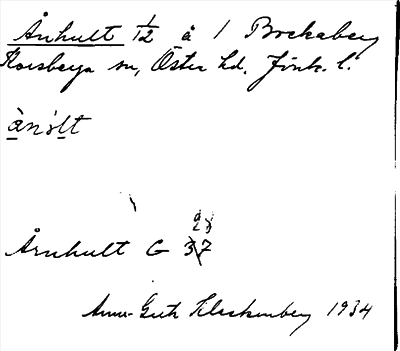 Ånhult 1/12 å 1 Brokaberg
Korsberga sn, Öster hd. Jönk. l.
ànò̀lt
Årnhult G 37
Anna-Greta Klockenberg 1934